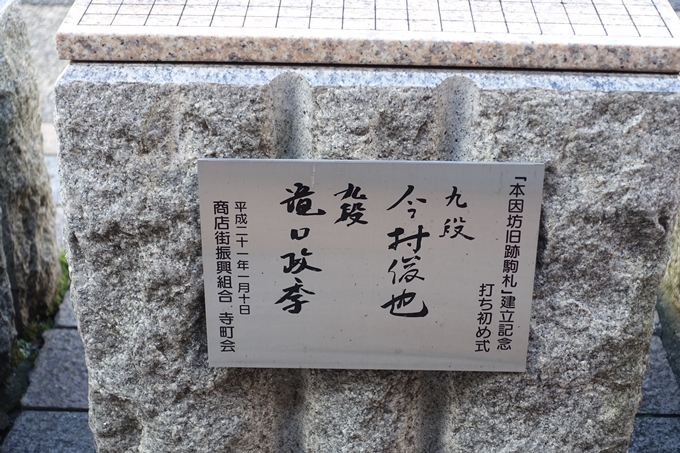 「本因坊旧跡駒札」建立記念
打ち初め式
九段
今村俊也
九段
滝口政季
平成二十一年一月十日
商店街振興組合 寺町会